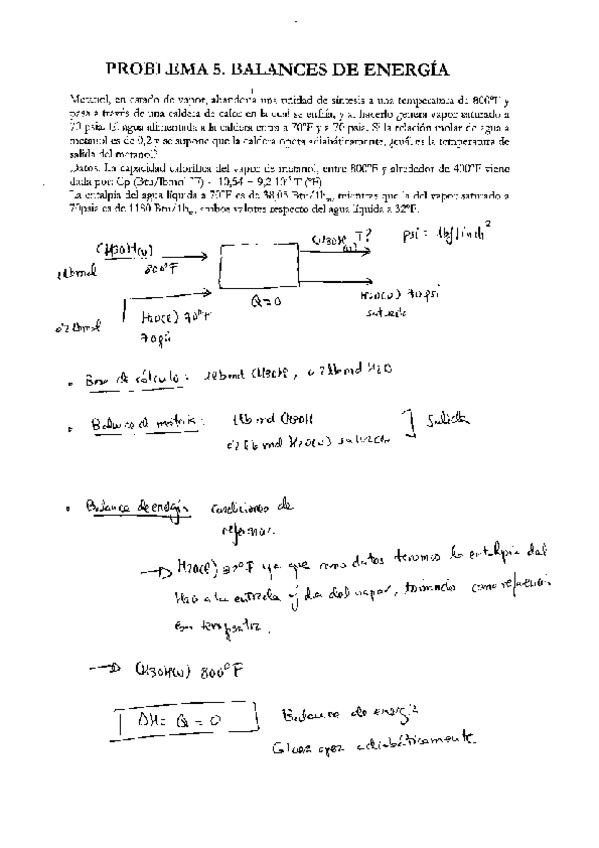 PROBLEMA 5. BALANCES DE ENERGÍA
Metanol, en estado de vapor, abandona una unidad de síntesis a una temperatura de 800ºF y
pasa a través de una caldera de calor en la cual se enfría, y al hacerlo genera vapor saturado a
70 psia. El agua alimentada a la caldera entra a 70ºF y a 70 psia. Si la relación molar de agua a
metanol es de 0,2 y se supone que la caldera opera adiabáticamente, ¿cuál es la temperatura de
salida del metanol?
Datos. La capacidad calorífica del vapor de metanol, entre 800ºF y alrededor de 400ºF viene
dada por: Cp (Btu/lbmol ºF) = 10,64 + 9,2 T (ºF)
La entalpía del agua líquida a 70ºF es de 38,05 Btu/lb, mientras que la del vapor saturado a
70psia es de 1180 Btu/lb, ambos valores respecto del agua líquida a 32ºF.
CH3OH(v) 1lbmol 800ºF
CH3OH(v) T?
psi = lbf/inch²
0,2 lbmol H2O(l) 70ºF 70psi
Q=0
H2O(v) 70psi saturado
• Base de cálculo: 1lbmol CH3OH, 0,2 lbmol H2O
• Balance de materia: 1lbmol CH3OH
0,2 lbmol H2O(v) saturado
] Salida
• Balance de energía: condiciones de
referencia.
→ H2O(l) 32ºF ya que como datos tenemos la entalpía del
H2O a la entrada y la del vapor, tomando como referencia
esa temperatura.
→ CH3OH(v) 800ºF
ΔH = Q = 0
Balance de energía
adiabáticamente